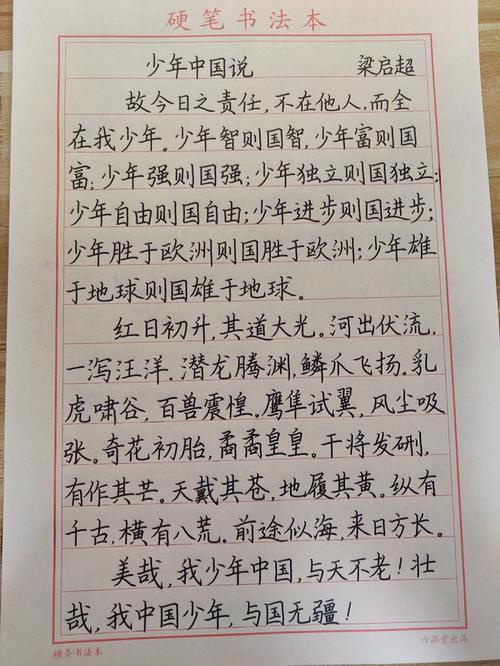 硬笔书法本
少年中国说 梁启超
故今日之责任,不在他人,而全
在我少年。少年智则国智,少年富则国
富;少年强则国强;少年独立则国独立;
少年自由则国自由;少年进步则国进步;
少年胜于欧洲则国胜于欧洲;少年雄
于地球则国雄于地球。
红日初升,其道大光。河出伏流,
一泻汪洋。潜龙腾渊,鳞爪飞扬。乳
虎啸谷,百兽震惶。鹰隼试翼,风尘吸
张。奇花初胎,矞矞皇皇。干将发硎,
有作其芒。天戴其苍,地履其黄。纵有
千古,横有八荒。前途似海,来日方长。
美哉,我少年中国,与天不老!壮
哉,我中国少年,与国无疆!
横条书法本 六品堂出品